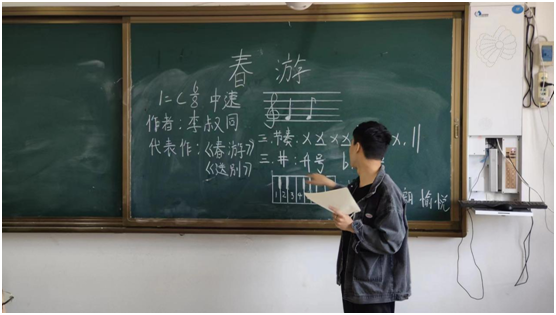 春 游
1=C 6/8 中速
作者:李叔同
代表作:《春游》
《送别》
二.节奏: X X X X X. ||
三.#:升号 b
1 2 3 4
愉悦